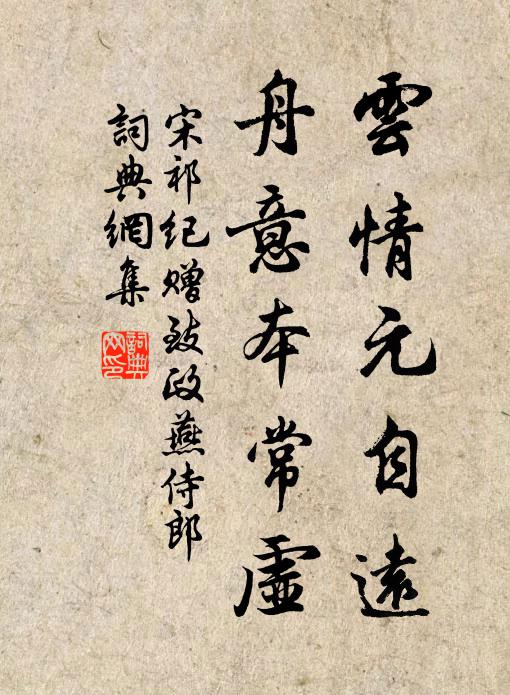 雲情元自遠
舟意本常虛
宋祁紀贈致政燕侍郎
詞典網集
詞典
网印